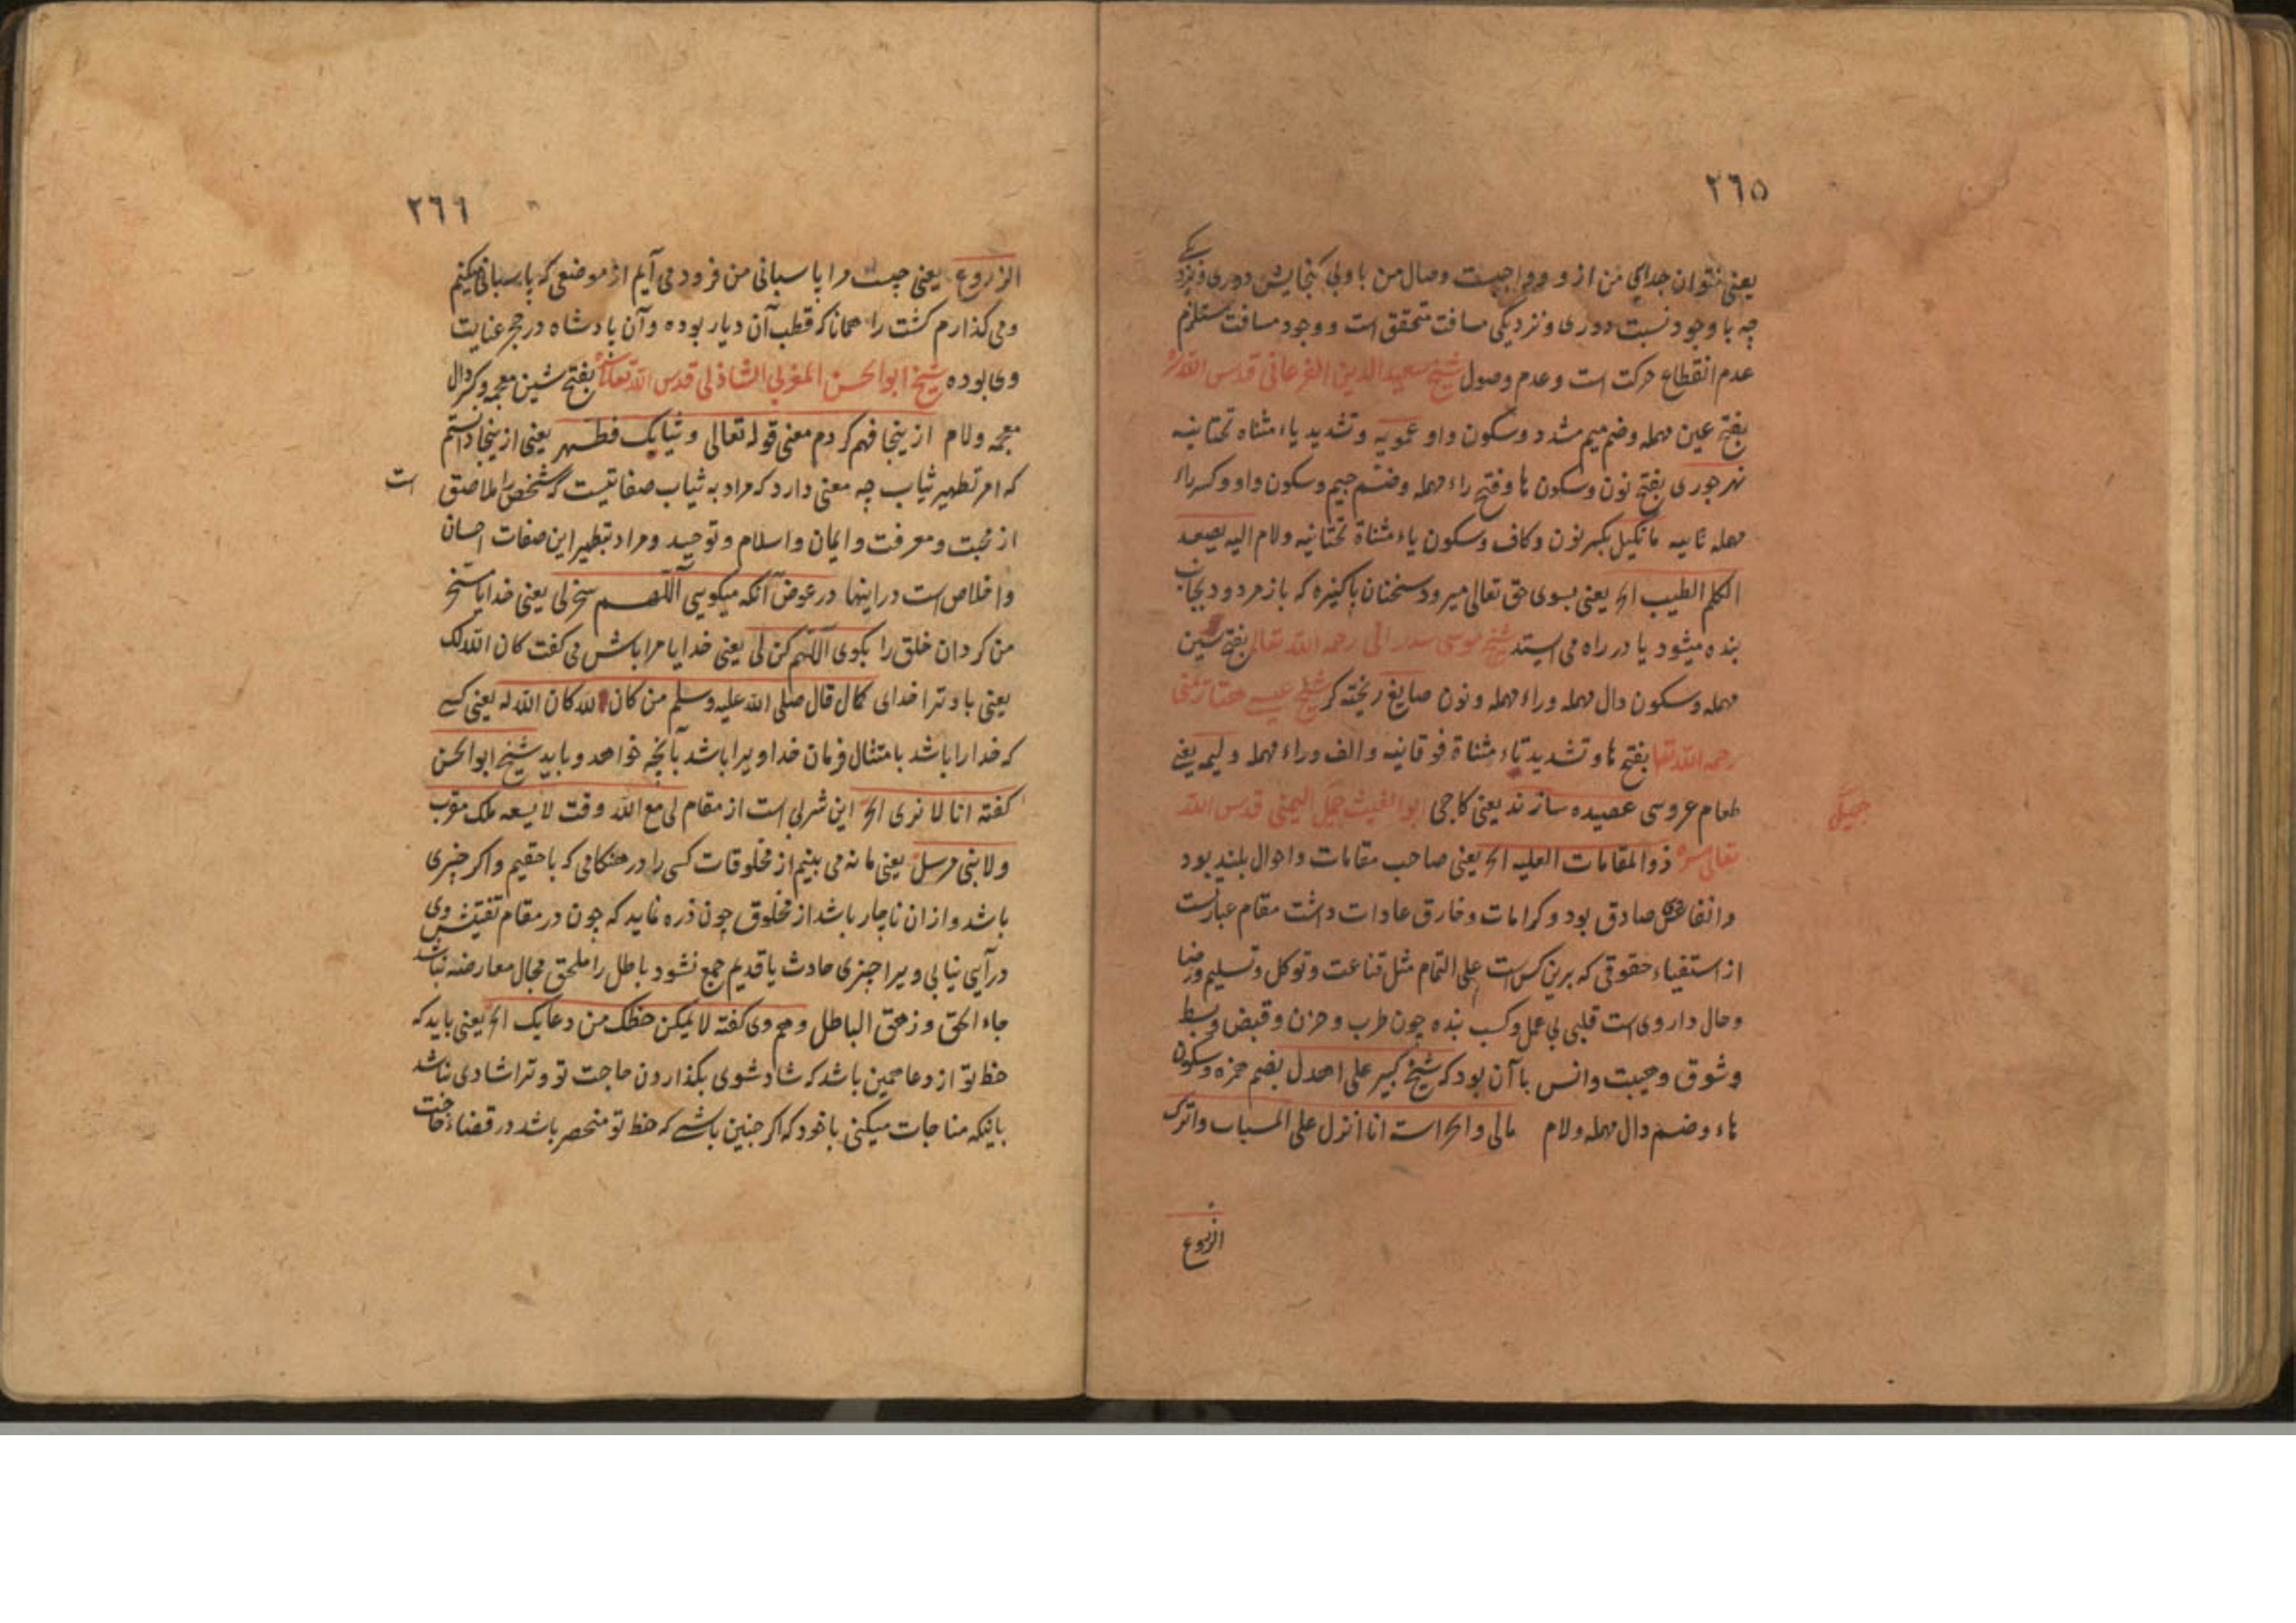 ٢٦٥
یعنی نتوان جدایی من ازو و واجبست وصال من با وبی کنجایش دوری و نزدیکے
چه با وجود نسبت دوری و نزدیکی مسافت متحقق است و وجود مسافت مستلزم
عدم انقطاع حرکت است و عدم وصول شیخ سعید الدین الفرغانی قدس الله سره
بفتح عین مهمله و ضم میم مشدد و سکون واو عمویه و تشدید یاء مثناه تحتانیه
نهرجوری بفتح نون و سکون ها و فتح راء مهمله و ضم جیم و سکون واو و کسر راء
مهمله ثانیه مانکیل بکسر نون و کاف و سکون یاء مثناة تحتانیه و لام الیه یصعد
الکلم الطیب الخ یعنی بسوی حق تعالی میرود سخنان پاکیزه که باز مردود بجانب
بنده میشود یا در راه می ایستد شیخ موسی سدرانی رحمه الله تعالی بفتح سین
مهمله و سکون دال مهمله و راء مهمله و نون صایغ ریخته کر شیخ عیسے هتار یمنی
رحمه الله تعا بفتح ها و تشدید تاء مثناة فوقانیه و الف و راء مهمله ولیمه یعنے
طعام عروسی عصیده سازند یعنی کاجی ابو الغیث جمیل الیمنی قدس الله
جمیل
تعالی سره ذو المقامات العلیه الخ یعنی صاحب مقامات و احوال بلند بود
و انفاس صادق بود و کرامات و خارق عادات داشت مقام عبارتست
از استفیاء حقوقی که برین کس است علی التمام مثل قناعت و توکل و تسلیم و رضا
و حال داروی است قلبی بی عمل و کسب بنده چون طرب و حزن و قبض و بسط
و شوق و هیبت و انس با آن بود که شیخ کبیر علی اهدل بضم همزه و سکون
هاء و ضم دال مهمله و لام مالی و الحراسة انا انزل علی المسباب و اترک
الزروع
٢٦٦
الزروع یعنی چیست مرا با پاسبانی من فرود می آیم از موضعی که پاسبانی میکنم
و می کذارم کشت را همانا که قطب آن دیار بوده و آن پادشاه در حجر عنایت
وی بوده شیخ ابو الحسن المغربی الشاذلی قدس الله تعالی سره بفتح شین معجمه و کسر دال
معجمه و لام از ینجا فهم کردم معنی قوله تعالی و ثیابک فطهر یعنی از ینجا دانستم
که امر تطهیر ثیاب چه معنی دارد که مراد به ثیاب صفاتیست که شخص را ملاصق است
از محبت و معرفت و ایمان و اسلام و توحید و مراد بتطهیر این صفات احسان
و اخلاص است در اینها در عوض آنکه میکویی اللهم سخر لی یعنی خدایا مسخر
من کردان خلق را بکوی اللهم کن لی یعنی خدایا مرا باش می کفت کان الله لک
یعنی باد ترا خدای کمال قال صلی الله علیه وسلم من کان لله کان الله له یعنی کسے
که خدا را باشد بامتثال فرمان خدا ویرا باشد بآنچه خواهد و باید شیخ ابو الحسن
کفته انا لا نری الخ این شربی است از مقام لی مع الله وقت لا یسعه ملک مقرب
ولا نبی مرسل یعنی ما نه می بینیم از مخلوقات کسی را در هنکامی که با حقیم و اکر چیزی
باشد و از ان ناچار باشد از مخلوق چون ذره نماید که چون در مقام تفتیش وی
در آیی نیابی ویرا چیزی حادث با قدیم جمع نشود باطل را ملحق مجال معارضه نباشد
جاء الحق و زهق الباطل و هم وی کفته لا یکن حظک من دعایک الخ یعنی باید که
حظ تو از دعا همین باشد که شاد شوی بکذارون حاجت تو و ترا شادی نباشد
بانکه مناجات میکنی با خود که اکر چنین باشے که حظ تو منحصر باشد در قضاء حاجت